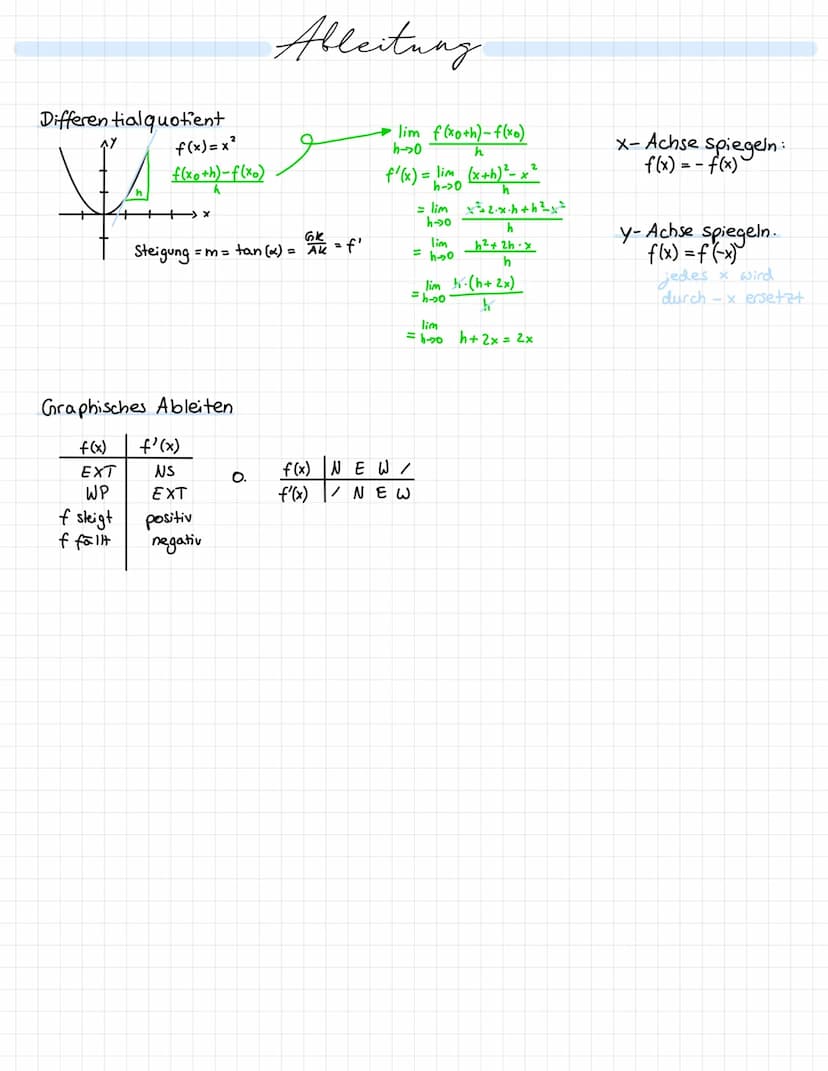 Ableitung
Differentialquotient
y
f(x) = x²
f(x₀+h)-f(x₀)
h
h
x
Steigung = m = tan(α) = GK/AK = f'
lim h→0 f(x₀+h)-f(x₀)
h
f'(x) = lim h→0 (x+h)² - x²
h
= lim h→0 x²+2·x·h+h²-x²
h
= lim h→0 h²+2h·x
h
= lim h→0 h·(h+2x)
h
= lim h→0 h+2x = 2x
x-Achse spiegeln:
f(x) = -f(x)
y-Achse spiegeln.
f(x) = f(-x)
jedes x wird
durch -x ersetzt
Graphisches Ableiten
f(x) f'(x)
EXT NS
WP EXT
f steigt positiv
f fällt negativ
o.
f(x) N E W /
f'(x) / N E W